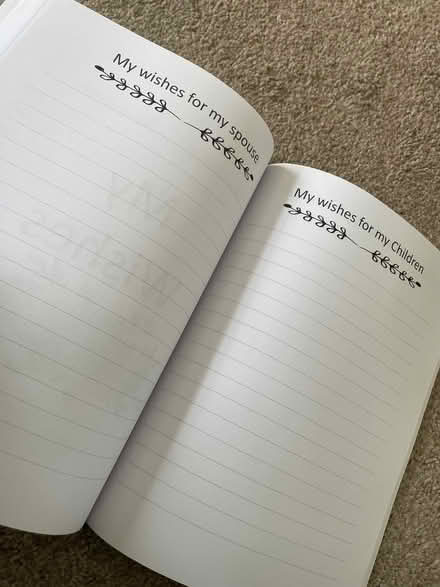 My wishes for my spouse
My wishes for my Children